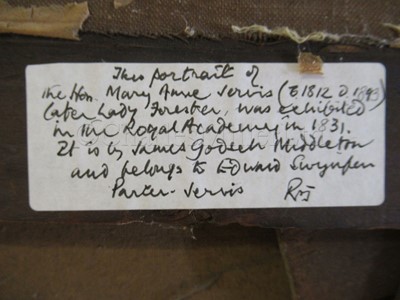 This portrait of
the Hon. Mary Anne Jervis (B 1812 D 1893)
later Lady Forester, was exhibited
in the Royal Academy in 1831.
It is by James Godsell Middleton
and belongs to Edward Swynfen
Parker-Jervis